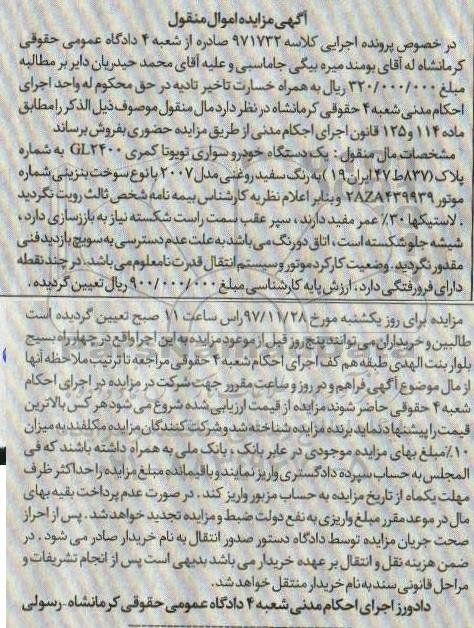 آگهی مزایده اموال منقول
در خصوص پرونده اجرایی کلاسه ۹۷۱۷۳۲ صادره از شعبه ۴ دادگاه عمومی حقوقی
کرمانشاه له آقای بومند میره بیگی جاماسبی و علیه آقای محمد حیدریان دایر بر مطالبه
مبلغ ۳۲۰/۰۰۰/۰۰۰ ریال به همراه خسارت تاخیر تادیه در حق محکوم له واحد اجرای
احکام مدنی شعبه ۴ حقوقی کرمانشاه در نظر دارد مال منقول موصوف ذیل الذکر را مطابق
ماده ۱۱۴ و ۱۲۵ قانون اجرای احکام مدنی از طریق مزایده حضوری بفروش برساند
مشخصات مال منقول : یک دستگاه خودرو سواری تویوتا کمری GL۲۴۰۰ به شماره
پلاک (۸۳۷ط۴۷ ایران ۱۹) به رنگ سفید روغنی مدل ۲۰۰۷ با نوع سوخت بنزینی شماره
موتور ۲AZA۴۳۹۹۳۹ و بنابر اعلام نظریه کارشناس بیمه نامه شخص ثالث رویت نگردید
. لاستیکها ۳۰٪ عمر مفید دارند ، سپر عقب سمت راست شکسته نیاز به بازسازی دارد ،
شیشه جلو شکسته است ، اتاق دور رنگ می باشد به علت عدم دسترسی به سویچ بازدید فنی
مقدور نگردید . وضعیت کارکرد موتور و سیستم انتقال قدرت نامعلوم می باشد . در چند نقطه
دارای فرورفتگی دارد ، ارزش پایه کارشناسی مبلغ ۹۰۰/۰۰۰/۰۰۰ ریال تعیین گردیده .
مزایده برای روز یکشنبه مورخ ۹۷/۱۱/۲۸ راس ساعت ۱۱ صبح تعیین گردیده است
طالبین و خریداران می توانند پنج روز قبل از موعود مزایده به این اجرا واقع در چهارراه بسیج
بلوار بنت الهدی طبقه هم کف اجرای احکام شعبه ۴ حقوقی مراجعه تا ترتیب ملاحظه آنها
از مال موضوع آگهی فراهم و در روز و ساعت مقرر جهت شرکت در مزایده در اجرای احکام
شعبه ۴ حقوقی حاضر شوند مزایده از قیمت ارزیابی شده شروع می شود هر کس بالاترین
قیمت را پیشنهاد نماید برنده مزایده شناخته شد و شرکت کنندگان مزایده مکلفند به میزان
۱۰٪ مبلغ بهای مزایده موجودی در عابر بانک ، بانک ملی به همراه داشته باشند که فی
المجلس به حساب سپرده دادگستری واریز نمایند و باقیمانده مبلغ مزایده را حداکثر ظرف
مهلت یکماه از تاریخ مزایده به حساب مزبور واریز کند . در صورت عدم پرداخت بقیه بهای
مال در موعد مقرر مبلغ واریزی به نفع دولت ضبط و مزایده تجدید خواهد شد . پس از احراز
صحت جریان مزایده توسط دادگاه دستور صدور انتقال به نام خریدار صادر می شود . در
ضمن هزینه نقل و انتقال بر عهده خریدار می باشد بدیهی است پس از انجام تشریفات و
مراحل قانونی سند به نام خریدار منتقل خواهد شد.
دادورز اجرای احکام مدنی شعبه ۴ دادگاه عمومی حقوقی کرمانشاه - رسولی